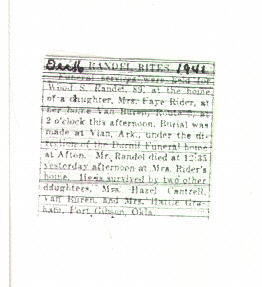 Death RANDEL RITES 1941
Funeral services were held for
Wood S. Randel, 89, at the home
of a daughter, Mrs. Faye Rider, at
her home Van Buren, Route 3, at
2 o'clock this afternoon. Burial was
made at Vian, Ark., under the di-
rection of the Burnil Funeral home
at Afton. Mr. Randel died at 12:35
yesterday afternoon at Mrs. Rider's
home. He is survived by two other
daughters, Mrs. Hazel Cantrell,
Van Buren, and Mrs. Hattie Gra-
ham, Fort Gibson, Okla.